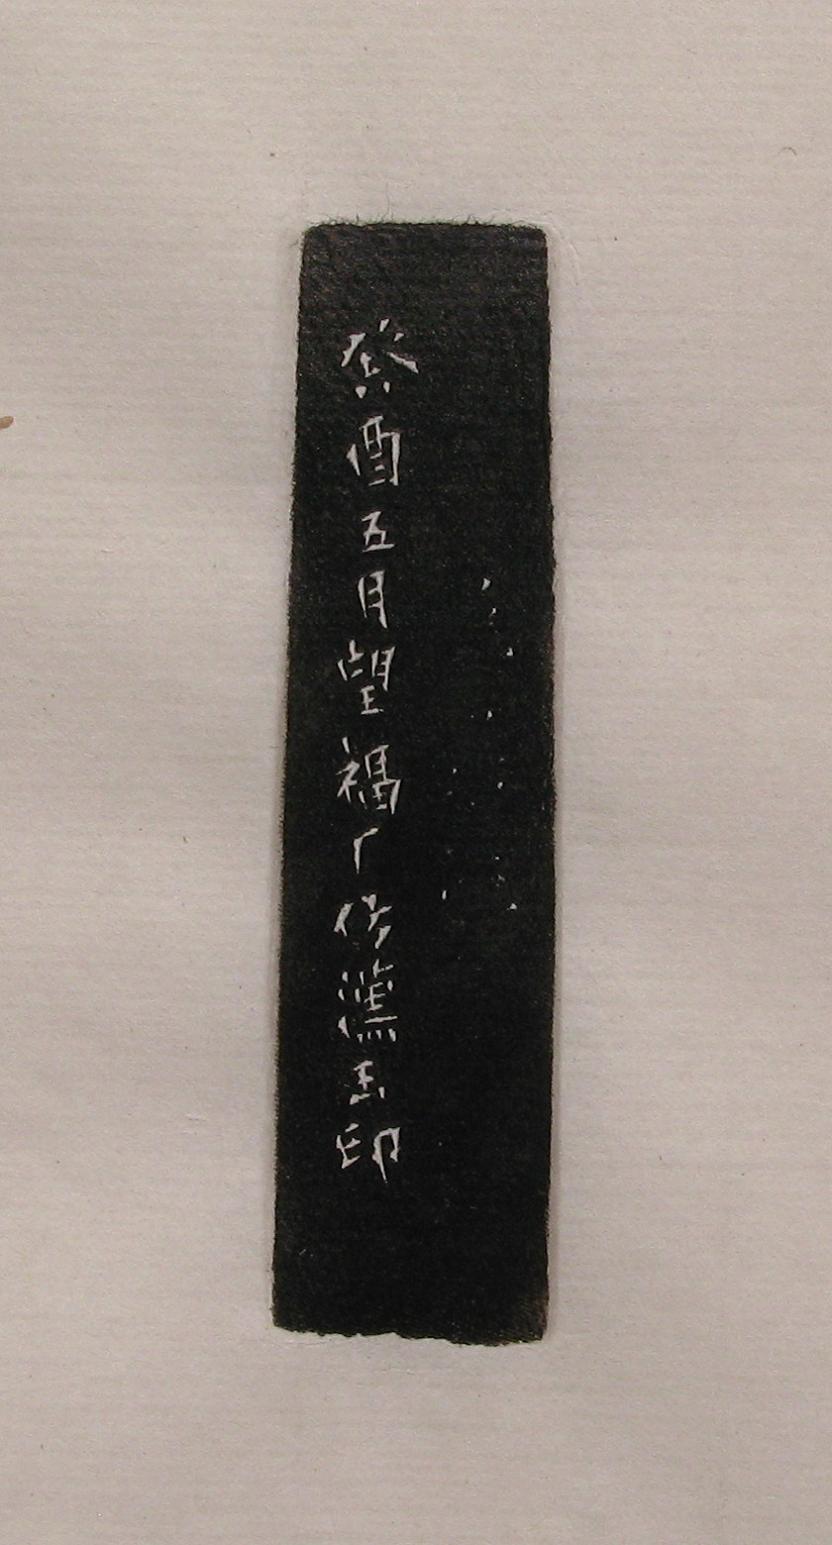 癸酉五月望福厂仿漢玉印